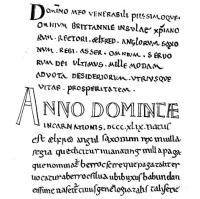 DOMINO MEO VENERABILI PIISSIMOQUE
OMNIUM BRITTANNIE INSULAE XPIANO
RUM. RECTORI. ÆLFRED. ANGLORUM. SAXO
NUM. REGI. ASSER. OMNIUM. SERVO
RUM DEI ULTIMUS. MILLE MODAM
ADVOTA DESIDERIORUM. UTRIUSQUE
VITAE. PROSPERITATEM.
ANNO DOMINICÆ
INCARNATIONIS. DCCC.XLIX. NATUS
est ælfred angul saxonum rex in villa
regia que dicitur uuanating in illa paga
que nominatur berrocscire que paga taliter
vocatur a berroc silva ubi buxus habundan
tissime nascitur cuius genealogia tali serie